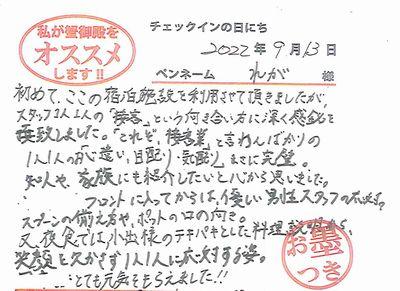 私が蟹御殿を
オススメ
します!!
チェックインの日にち
2022年9月13日
ペンネーム れが 様
初めて、ここの宿泊施設を利用させて頂きましたが、
スタッフ1人1人の「接客」という向き合い方に深く感銘を
致しました。「これぞ、接客業」と言わんばかりの
1人1人の「心遣い、目配り、気配り」まさに完璧。
知人や、家族にも紹介したいと心から思いました。
フロントに入ってからは、優しい男性スタッフの対応
スプーンの備え方や、ポットの口の向き。
又、夜食では小出様のテキパキとした料理説明
笑顔を欠かさず1人1人に対応する姿。
とても元気をもらえました!!
お墨
つき